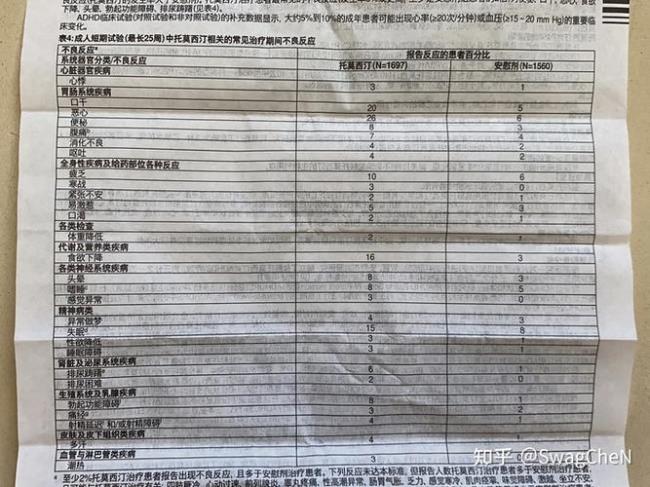 下降、头晕、勃起功能障碍、排尿踌躇(见表4)。
ADHD临床试验(对照试验和非对照试验)的补充数据显示，大约5%到10%的成年患者可能出现心率(≥20次/分钟)或血压(≥15 – 20 mm Hg)的重要临
床变化。
表4:成人短期试验(最长25周)中托莫西汀相关的常见治疗期间不良反应
不良反应a 报告反应的患者百分比
系统器官分类/不良反应 托莫西汀(N=1697) 安慰剂(N=1560)
心脏器官疾病
心悸 3 1
胃肠系统疾病
口干 20 5
恶心 26 6
便秘 8 3
腹痛b 7 4
消化不良 4 2
呕吐 4 2
全身性疾病及给药部位各种反应
疲乏 10 6
寒战 3 0
紧张不安 2 1
易激惹 5 3
口渴 2 1
各类检查
体重降低 2 1
代谢及营养类疾病
食欲下降 16 3
各类神经系统疾病
头晕 8 3
嗜睡c 8 5
感觉异常 3 0
精神病类
异常做梦 4 3
失眠d 15 8
性欲降低 3 1
睡眠障碍 3 1
肾脏及泌尿系统疾病
排尿踌躇e 6 1
排尿困难 2 0
生殖系统及乳腺疾病
勃起功能障碍f 8 1
痛经g 3 2
射精延迟f和/或射精障碍f 4 1
皮肤及皮下组织类疾病
多汗 4 1
血管与淋巴管类疾病
潮热 3
a 至少2%托莫西汀治疗患者报告出现不良反应，且多于安慰剂治疗患者。下列反应未达本标准，但报告人数托莫西汀治疗患者多于安慰剂
知乎 @SwagCheN